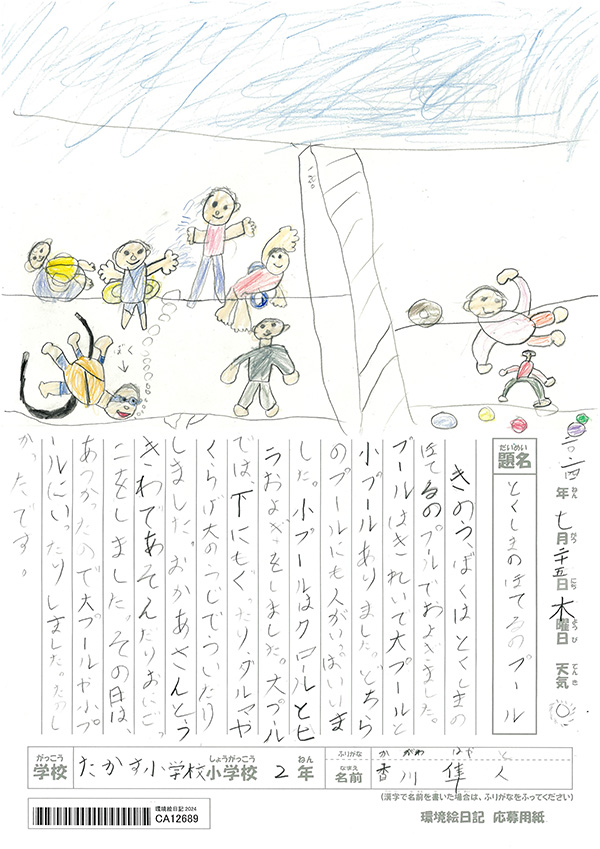 二〇二四年七月二十五日木曜日 天気
ねん がつ にち ようび てんき
だいめい
題名
とくしまのほてるのプール
きのう、ぼくはとくしまの
ほてるのプールでおよぎました。
プールはきれいで大プールと
小プールありました。どちら
のプールにも人がいっぱいいま
した。小プールはクロールとヒ
うおよぎをしました。大プール
では、下にもぐったり、ダルマや
くらげ大のうじでういたり
しました。おかあさんとう
きわであそんだりおにごっ
こをしました。その日は、
あつかったので大プールや小プ
ールにいったりしました。たのし
かったです。
ぼく
がっこう
学校
たかす小学校
しょうがっこう
小学校
2
ねん
年
ふりがな
かがわ はやと
なまえ
名前
香川 隼人
(漢字で名前を書いた場合は、ふりがなをふってください)
環境絵日記 2024
CA12689
環境絵日記 応募用紙